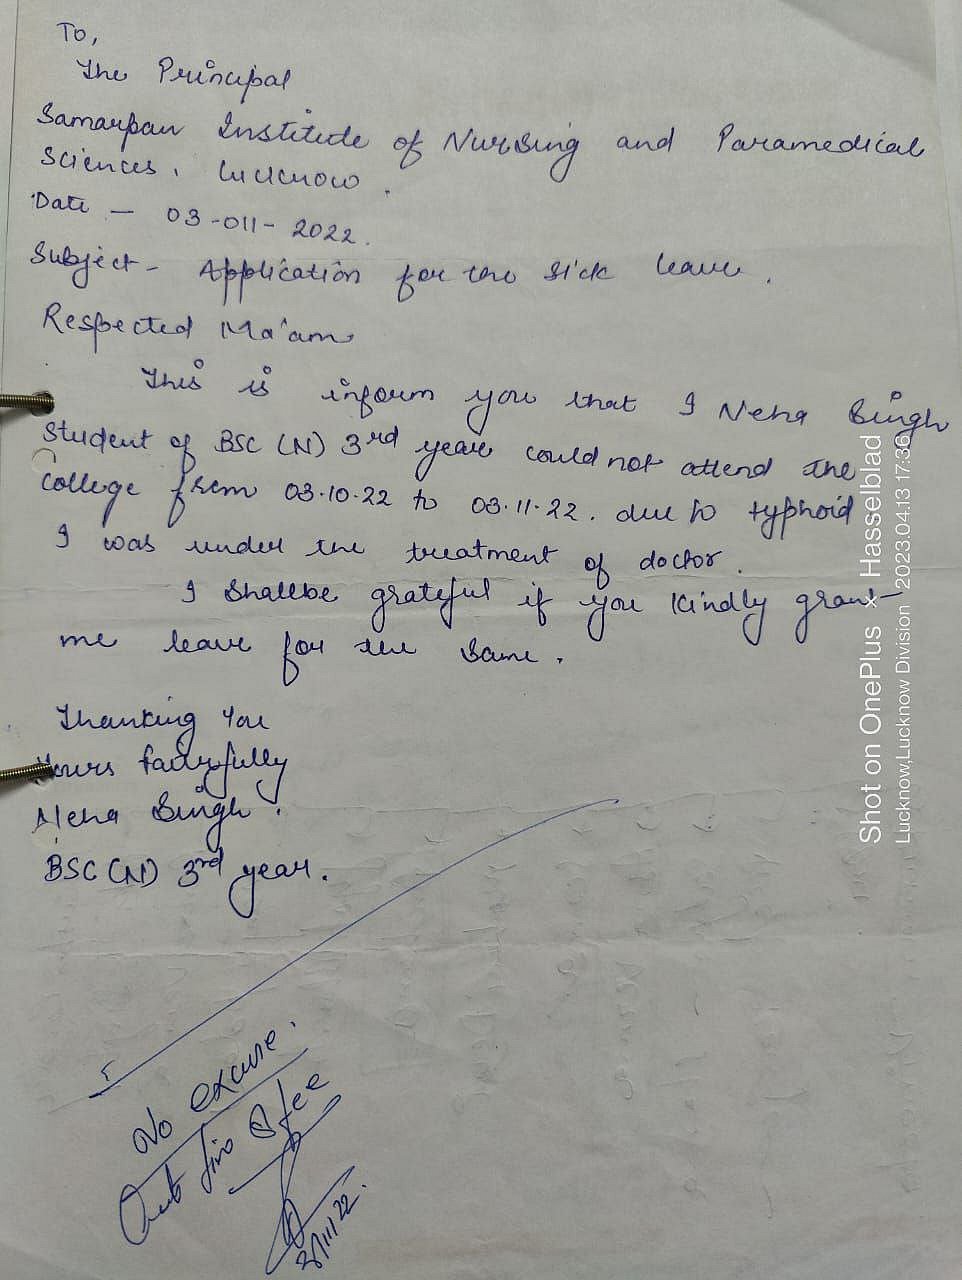 To,
The Principal
Samarpan Institute of Nursing and Paramedical
Sciences, Lucknow.
Date - 03-011-2022.
Subject- Application for the sick leave.
Respected Ma'am
This is inform you that I Neha Singh
student of BSC (N) 3rd year could not attend the
college from 03.10.22 to 03.11.22. due to typhoid
I was under the treatment of doctor.
I shallbe grateful if you kindly grant
me leave for the same.
Thanking You
Yours faithfully
Neha Singh.
BSC (N) 3rd year.
No excuse.
fine & fee
Shot on OnePlus x Hasselblad
Lucknow,Lucknow Division 2023.04.13 17:36